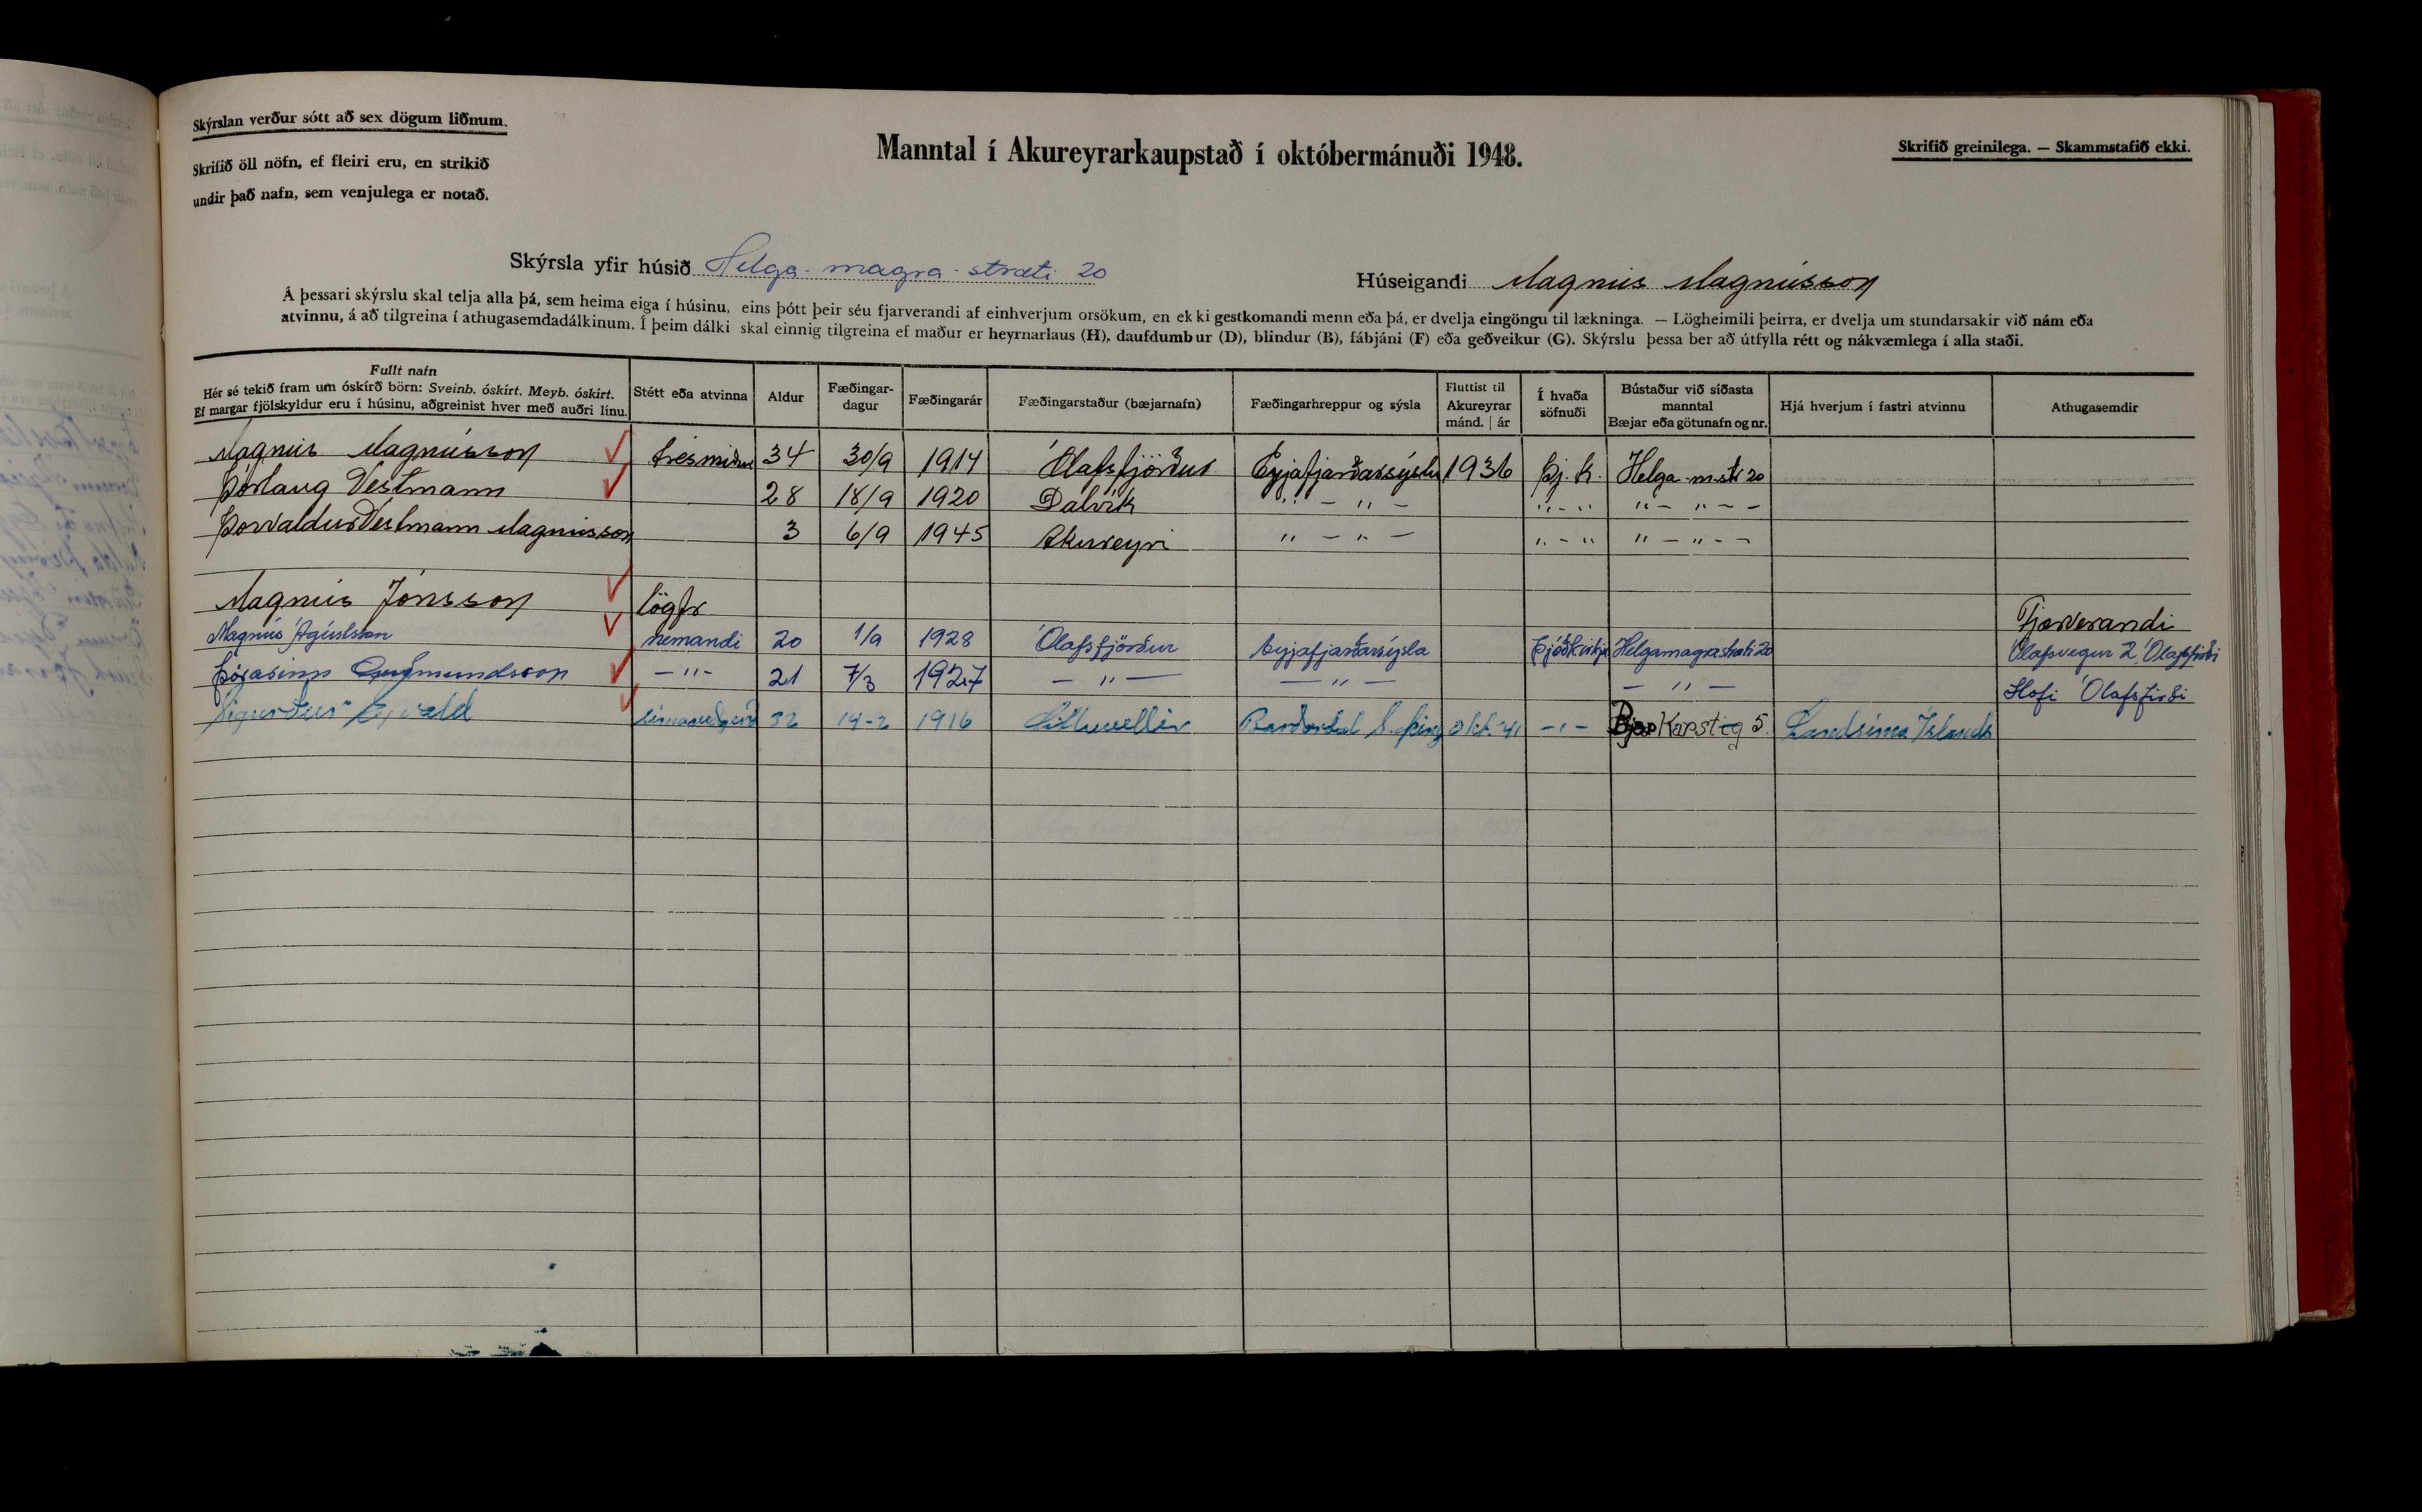 Skýrslan verður sótt að sex dögum liðnum.
Skrifið öll nöfn, ef fleiri eru, en strikið
undir það nafn, sem venjulega er notað.
Manntal í Akureyrarkaupstað í októbermánuði 1948.
Skrifið greinilega. — Skammstafið ekki.
Skýrsla yfir húsið Helga-magra-stræti 20
Húseigandi Magnús Magnússon
Á þessari skýrslu skal telja alla þá, sem heima eiga í húsinu, eins þótt þeir séu fjarverandi af einhverjum orsökum, en ekki gestkomandi menn eða þá, er dvelja eingöngu til lækninga. — Lögheimili þeirra, er dvelja um stundarsakir við nám eða
atvinnu, á að tilgreina í athugasemdadálkinum. Í þeim dálki skal einnig tilgreina ef maður er heyrnarlaus (H), daufdumbur (D), blindur (B), fábjáni (F) eða geðveikur (G). Skýrslu þessa ber að útfylla rétt og nákvæmlega í alla staði.
Fullt nafn
Hér sé tekið fram um óskírð börn: Sveinb. óskírt. Meyb. óskírt.
Ef margar fjölskyldur eru í húsinu, aðgreinist hver með auðri línu.
Stétt eða atvinna
Aldur
Fæðingar-
dagur
Fæðingarár
Fæðingarstaður (bæjarnafn)
Fæðingarhreppur og sýsla
Fluttist til
Akureyrar
mánd. | ár
Í hvaða
söfnuði
Bústaður við síðasta
manntal
Bæjar eða götunafn og nr.
Hjá hverjum í fastri atvinnu
Athugasemdir
Magnús Magnússon trésmiður 34 30/9 1914 Ólafsfjörður Eyjafjarðarsýslu 1936 Þj. k. Helga-m.str 20
Þórlaug Vestmann 28 18/9 1920 Dalvík " - " - " - " " - " - -
Þorvaldur Vestmann Magnússon 3 6/9 1945 Akureyri " - " - " - " " - " - -
Magnús Jónsson lögfr Fjarverandi
Magnús Ágústsson nemandi 20 1/9 1928 Ólafsfjörður Eyjafjarðarsýsla Þjóðkirkju Helgamagrastræti 20 Ólafsvegur 2, Ólafsfirði
Þórarinn Guðmundsson - " - 21 7/3 1927 - " - - " - - " - Hofi Ólafsfirði
Sigurður Eyvald 32 14-2 1916 Bárðardal S. Þing okt. '41 - " - Kapstíg 5. Landsíma Íslands